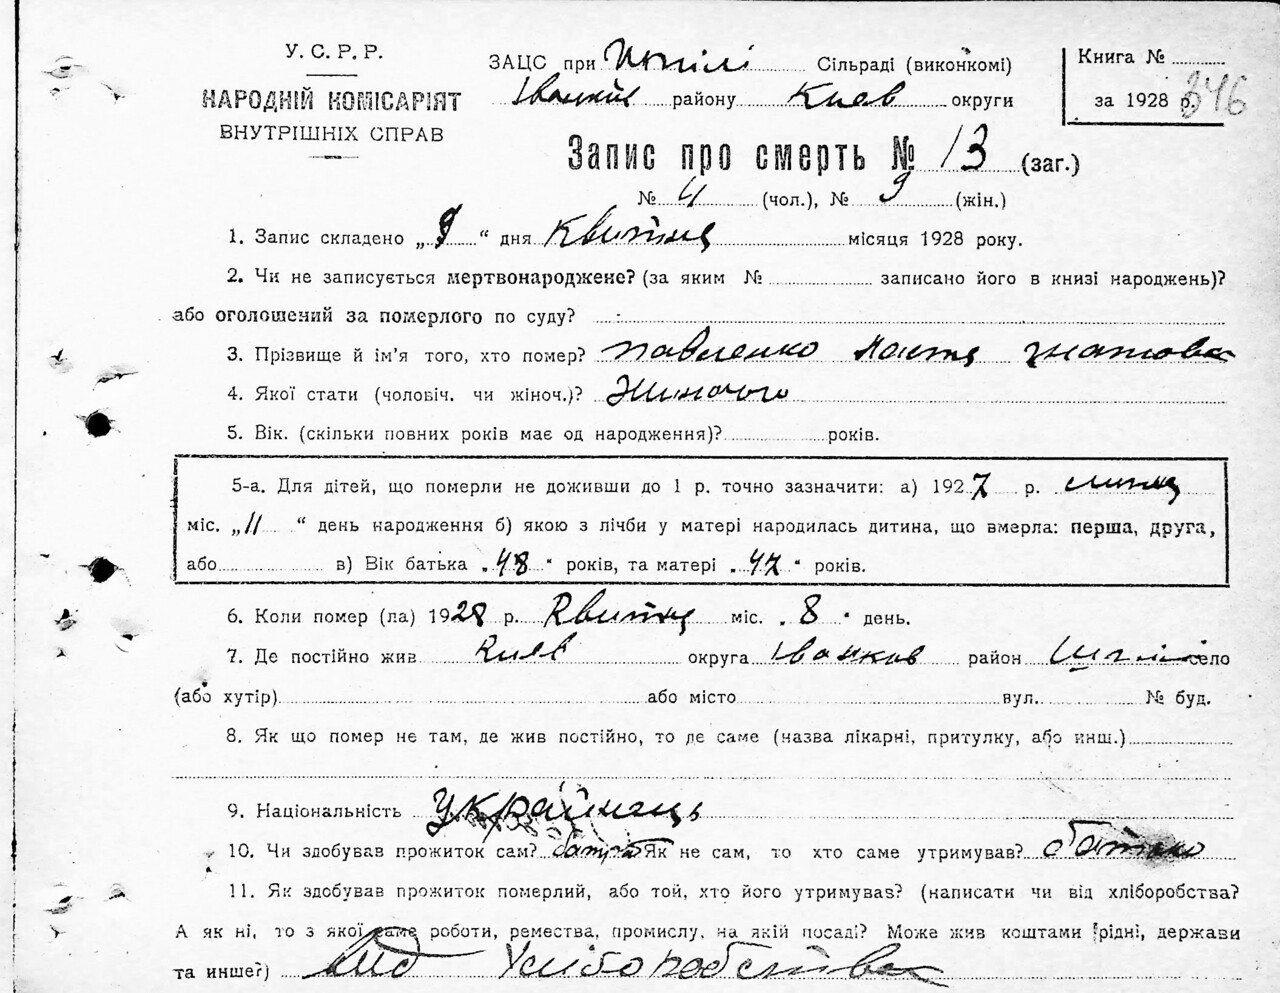 У. С. Р. Р.
НАРОДНІЙ КОМІСАРІЯТ
ВНУТРІШНІХ СПРАВ
ЗАЦС при Сільраді (виконкомі)
району Киев округи
Книга №
за 1928 р. 346
Запис про смерть № 13 (заг.)
№ 4 (чол.), № 9 (жін.)
1. Запис складено „ 9 “ дня Квитня місяця 1928 року.
2. Чи не записується мертвонароджене? (за яким № записано його в книзі народжень)?
або оголошений за померлого по суду? -
3. Прізвище й ім'я того, хто помер? Павленко Настя Гнатовна
4. Якої стати (чоловіч. чи жіноч.)? Жиночого
5. Вік. (скільки повних років має од народження)? років.
5-а. Для дітей, що померли не доживши до 1 р. точно зазначити: а) 1927 р. липня
міс. „ 11 “ день народження б) якою з лічби у матері народилась дитина, що вмерла: перша, друга,
або в) Вік батька „ 48 “ років, та матері „ 47 “ років.
6. Коли помер (ла) 1928 р. Квитня міс. „ 8 “ день.
7. Де постійно жив Киев округа Іванков район село
(або хутір) або місто вул. № буд.
8. Як що помер не там, де жив постійно, то де саме (назва лікарні, притулку, або инш.)
9. Національність Українець
10. Чи здобував прожиток сам? Як не сам, то хто саме утримував? батько
11. Як здобував прожиток померлий, або той, хто його утримував? (написати чи від хліборобства?
А як ні, то з якої саме роботи, ремества, промислу, на якій посаді? Може жив коштами рідні, держави
та инше?) Вид Хліборобства